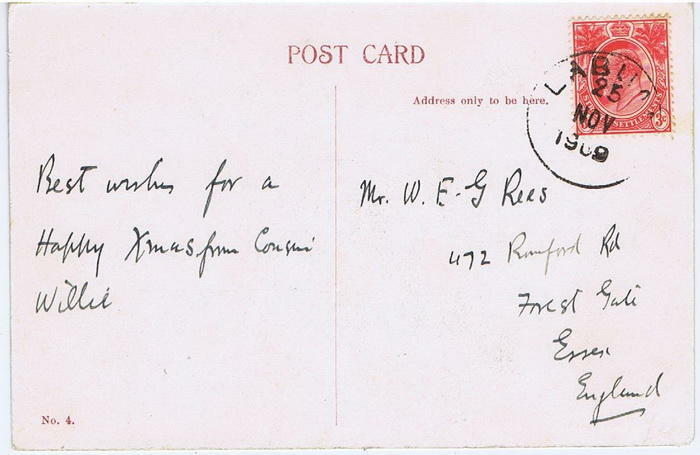 POST CARD
Address only to be here.
LABU
25
NOV
1909
SETTLEMENTS
Best wishes for a
Happy Xmas from Cousin
Willie
Mr. W. E. G Rees
472 Romford Rd
Forest Gate
Essex
England
No. 4.